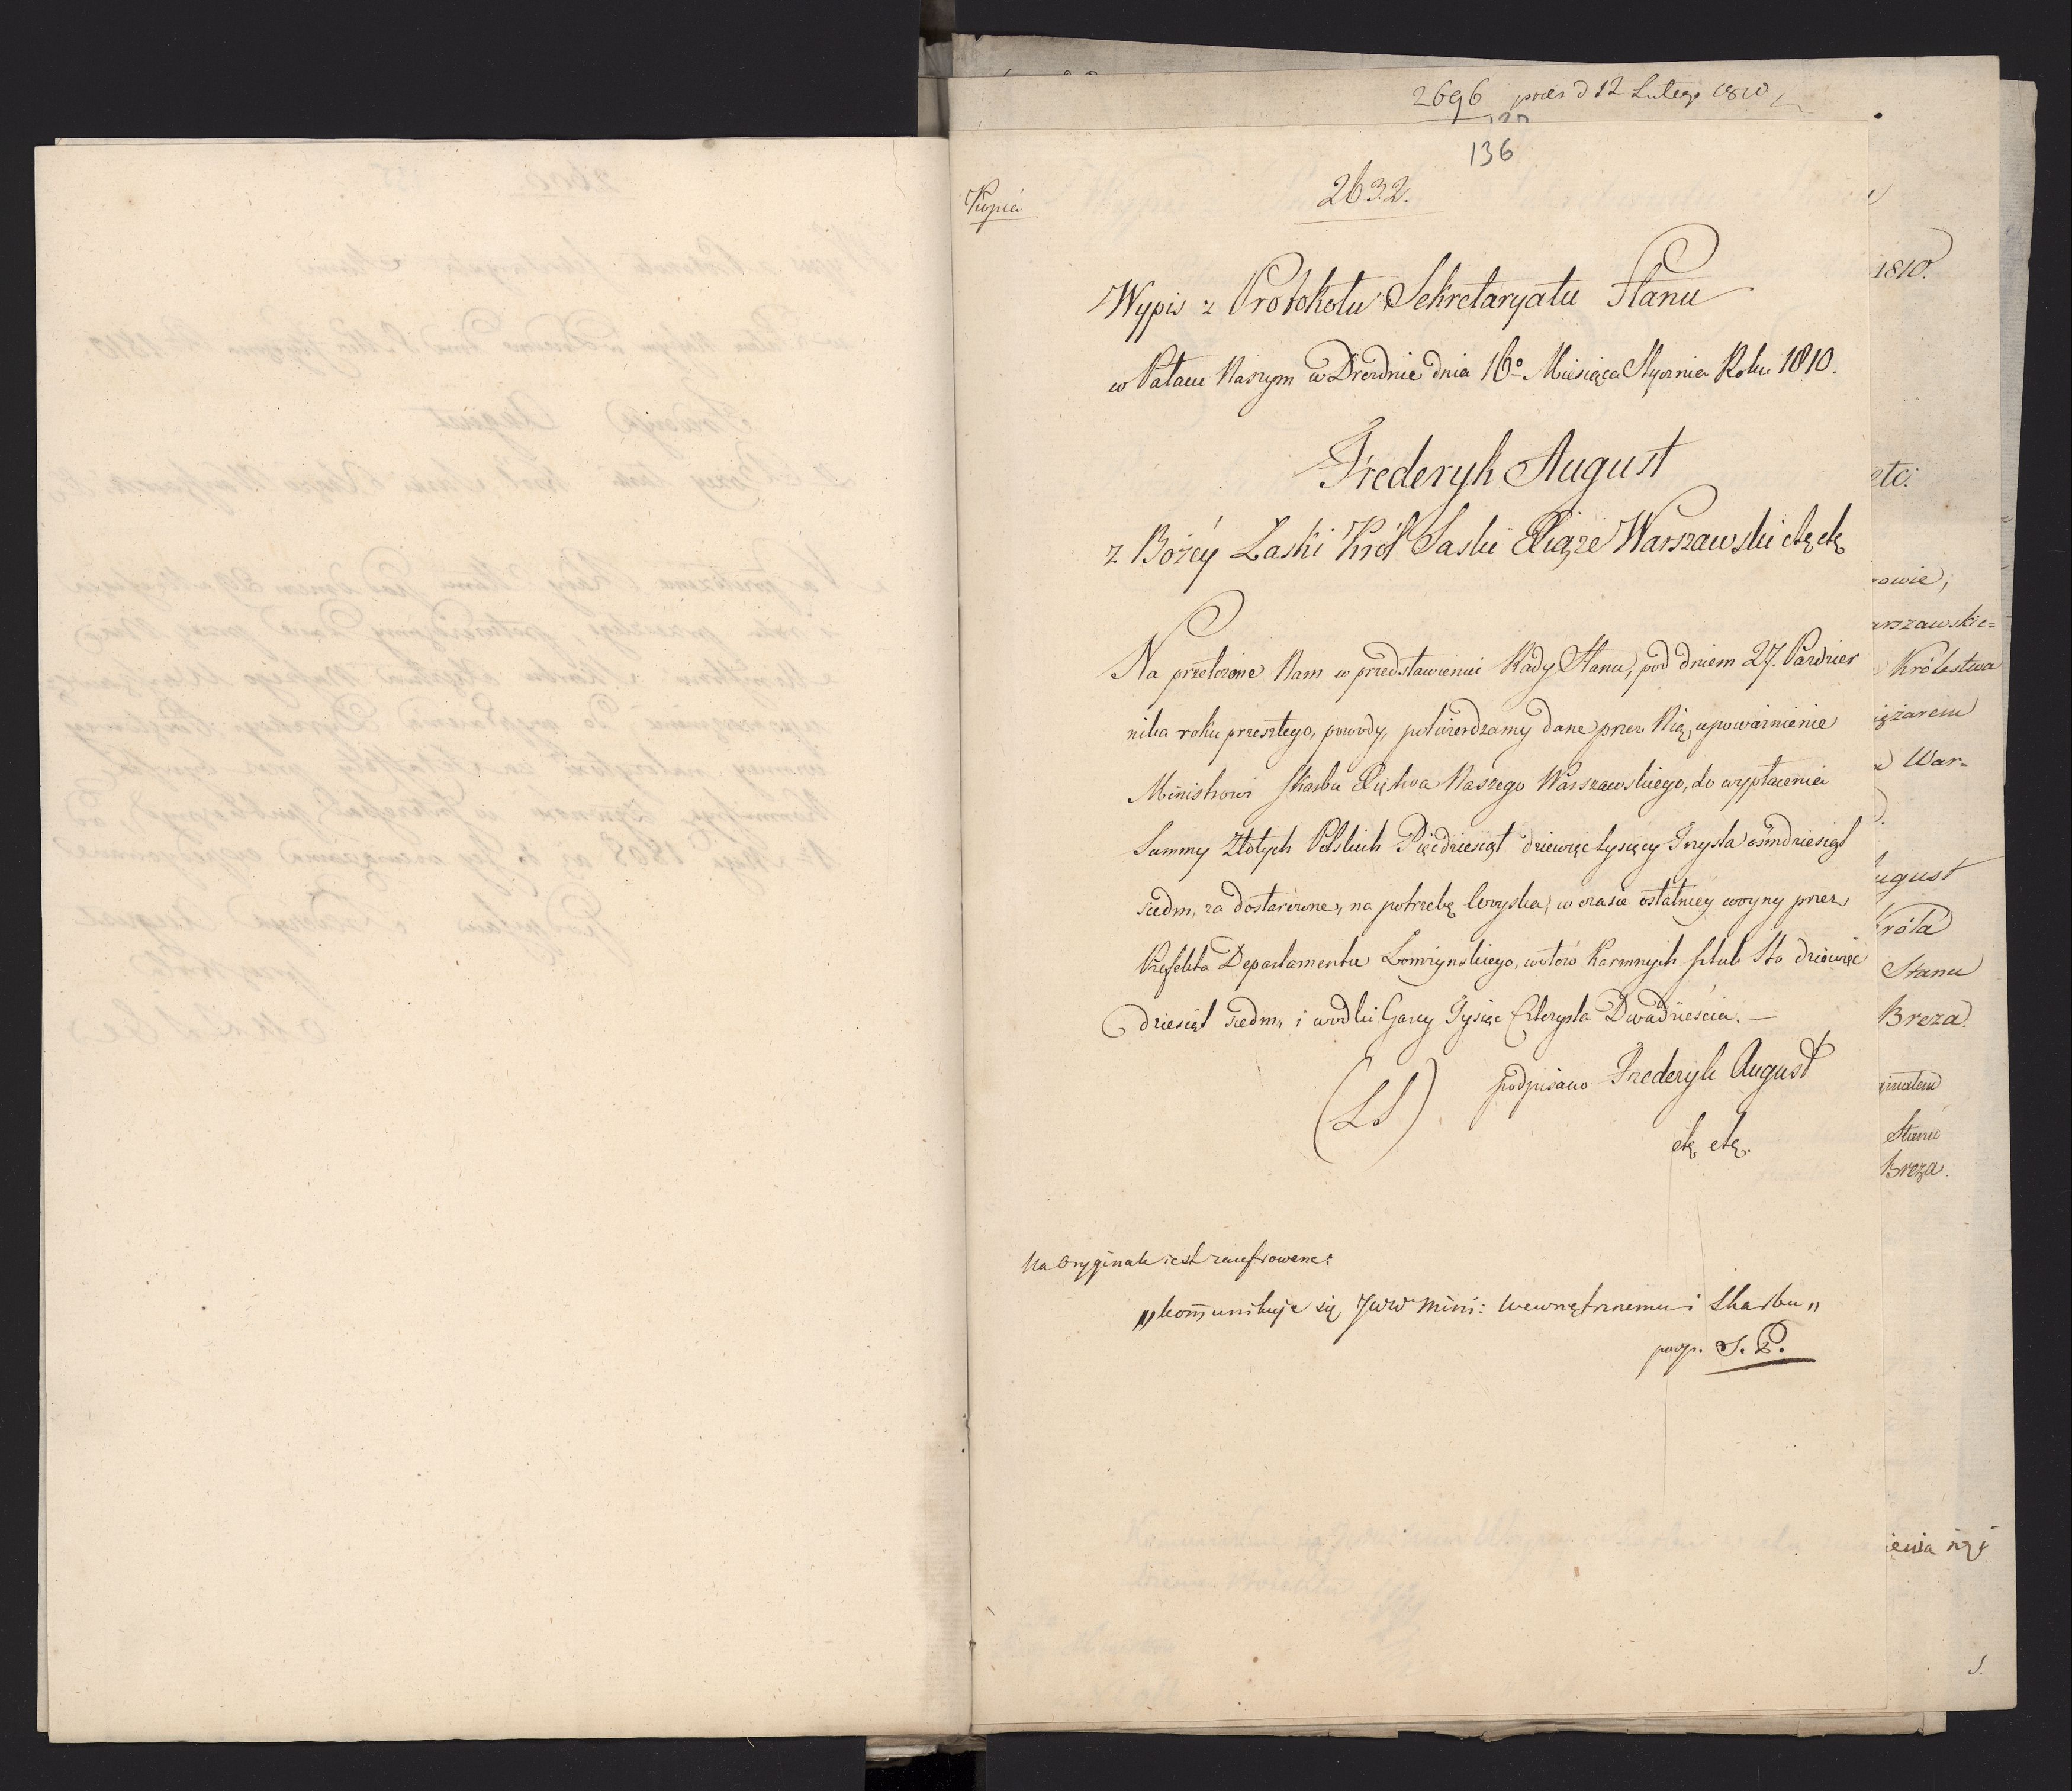 2696 pres d 12 Lutego 1810
136
Kopia
2632.
Wypis z Protokołu Sekretaryatu Stanu
w Pałacu Naszym w Dreznie dnia 16º Miesiąca Stycznia Roku 1810.
Frederyk August
z Bożey Łaski Król Saski Xiąże Warszawski etc etc
Na przełożone Nam w przedstawieniu Rady Stanu, pod dniem 27. Paździer
nika roku przeszłego, powody, potwierdzamy dane przez Nią, upoważnienie
Ministrowi Skarbu Xięstwa Naszego Warszawskiego, do wypłacenia
Summy Złotych Polskich Pięćdziesiąt dziewięć tysięcy Trzysta ośmdziesiąt
siedm, za dostarczone, na potrzebę Woyska, w czasie ostatniey woyny przez
Prefekta Departamentu Łomżyńskiego, wołów Karmnych sztuk Sto dziewięć
dziesiąt siedm, i wódki Garcy Tysiąc Czterysta Dwadzieścia. —
(LS) podpisano Frederyk August
etc etc.
Na Oryginale iest zacyfrowane:
„kom̄unikuje się JWW Mini: Wewnętrznemu i Skarbu„
podp. S. P.
1810.
etc:
rowie,
arszawskie=
Królestwa
iężarem
War=
ugust
Króla
Stanu
Breza.
ginałem
Stanu
Breza.
ienia